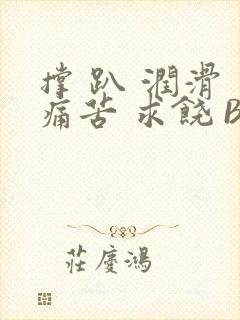 撑 趴 潤滑
痛苦 求饒 B
莊慶鴻